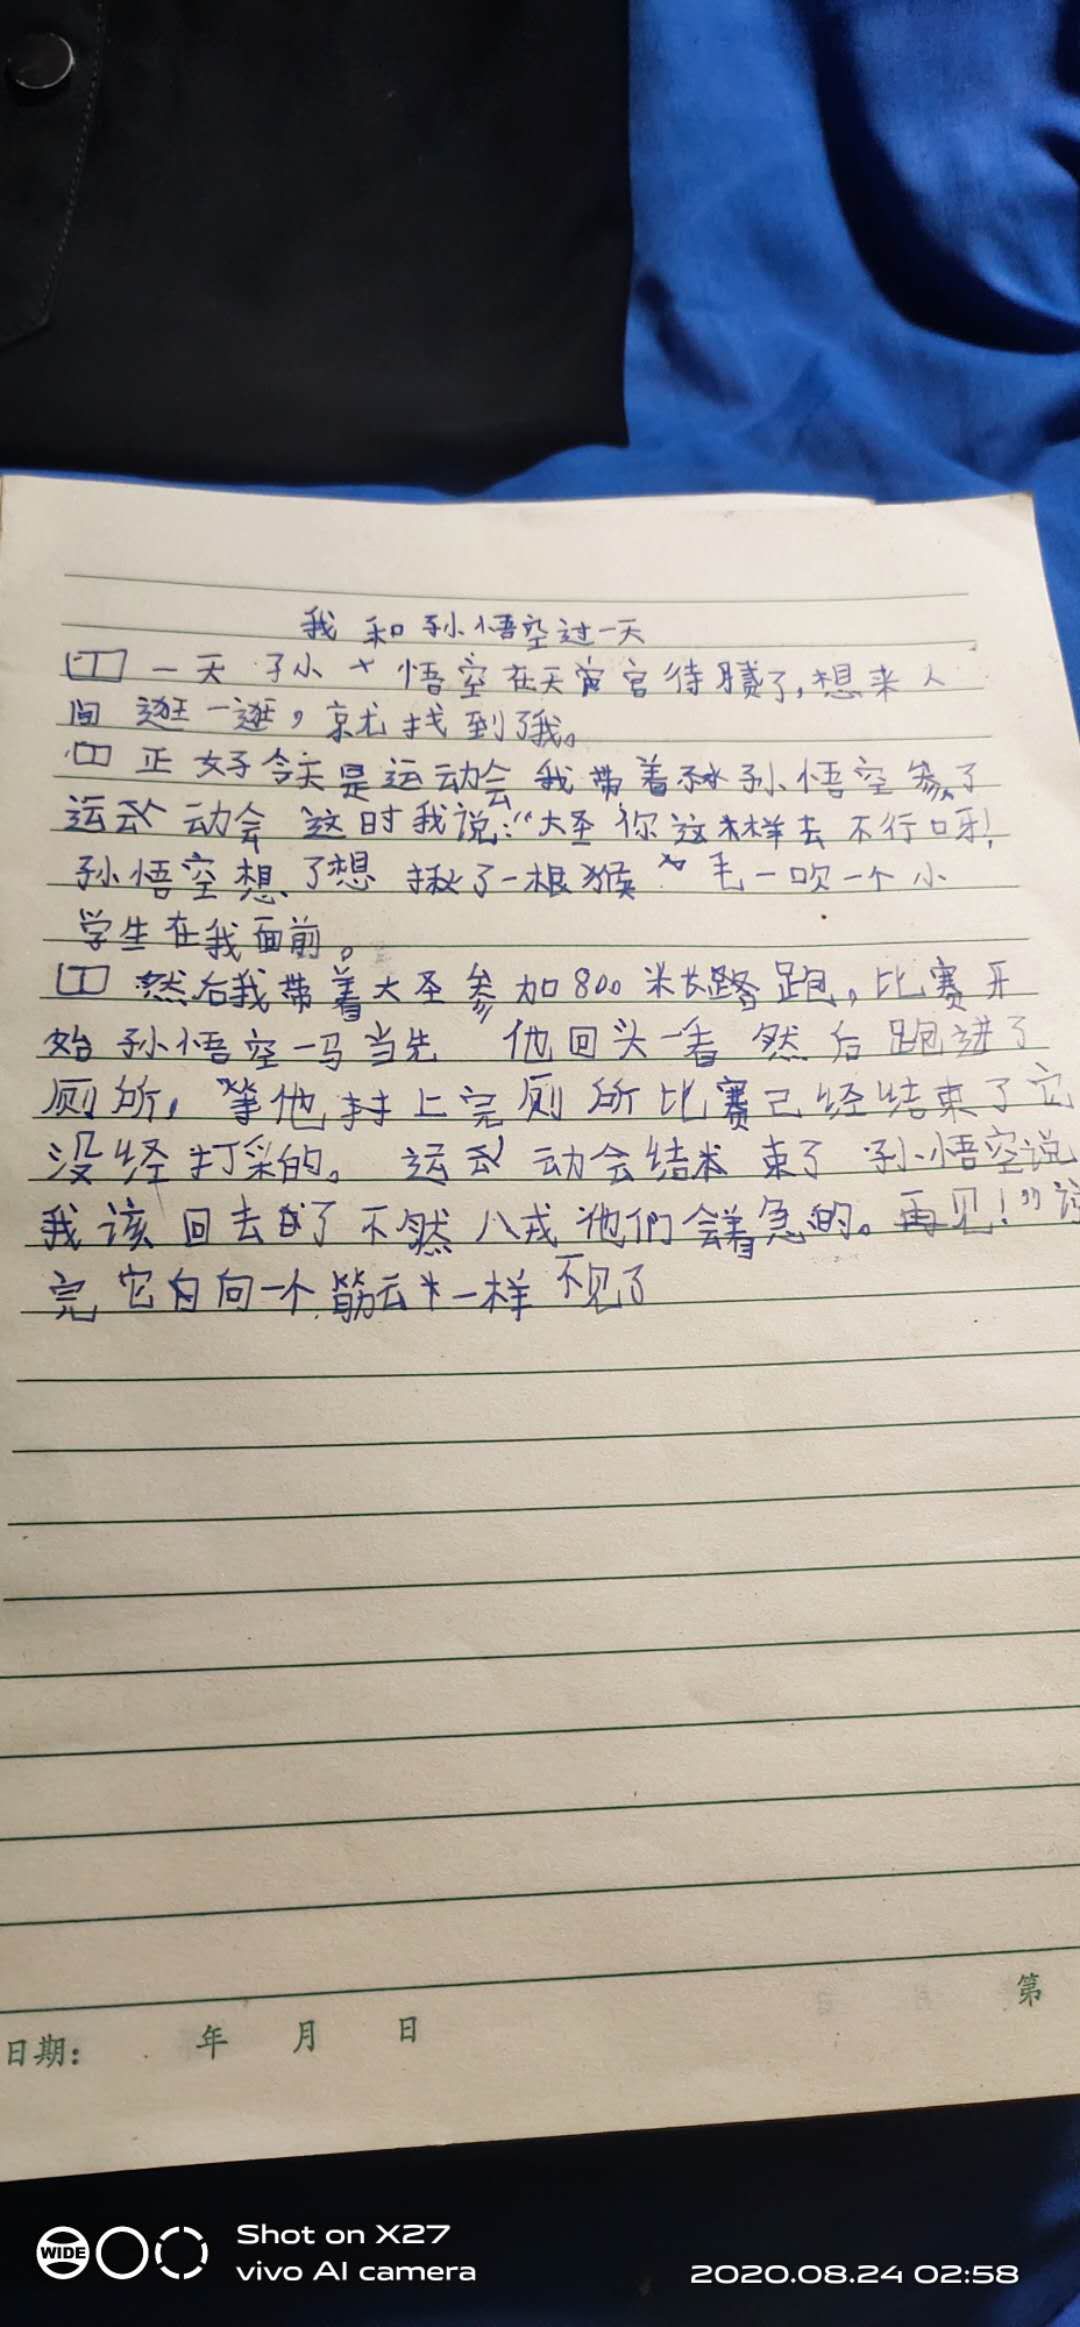 我和孙悟空过一天
一天 孙悟空在天宫待腻了，想来人
间 逛一逛，就找到了我。
正好今天是运动会 我带着孙悟空参了
运动会 这时我说：“大圣你这样去不行呀！
孙悟空想了想 揪了一根猴毛一吹一个小
学生在我面前。
然后我带着大圣参加800米长跑，比赛开
始 孙悟空一马当先 他回头一看 然后跑进了
厕所，等他上完厕所比赛已经结束了它
没经打采的。 运动会结束了 孙悟空说
我该回去的了不然八戒他们会着急的。再见！”说
完 它向一个筋云一样不见了
日期： 年 月 日
第
WIDE
Shot on X27
vivo AI camera
2020.08.24 02:58